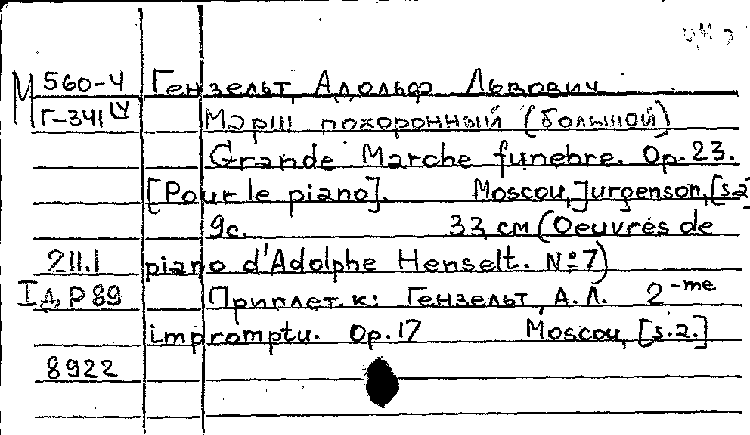 М 560-4 Гензельт, Адольф Львович
Г-341 Марш похоронный (большой)
Grande Marche funebre. Op. 23.
[Pour le piano]. Moscou, Jurgenson, [s.a]
9с. 33 см (Oeuvres de
211.1 piano d'Adolphe Henselt. № 7)
IД, P 89 Приплет. к: Гензельт, А. Л. 2-me
impromptu. Op. 17 Moscou, [s.a.]
8922